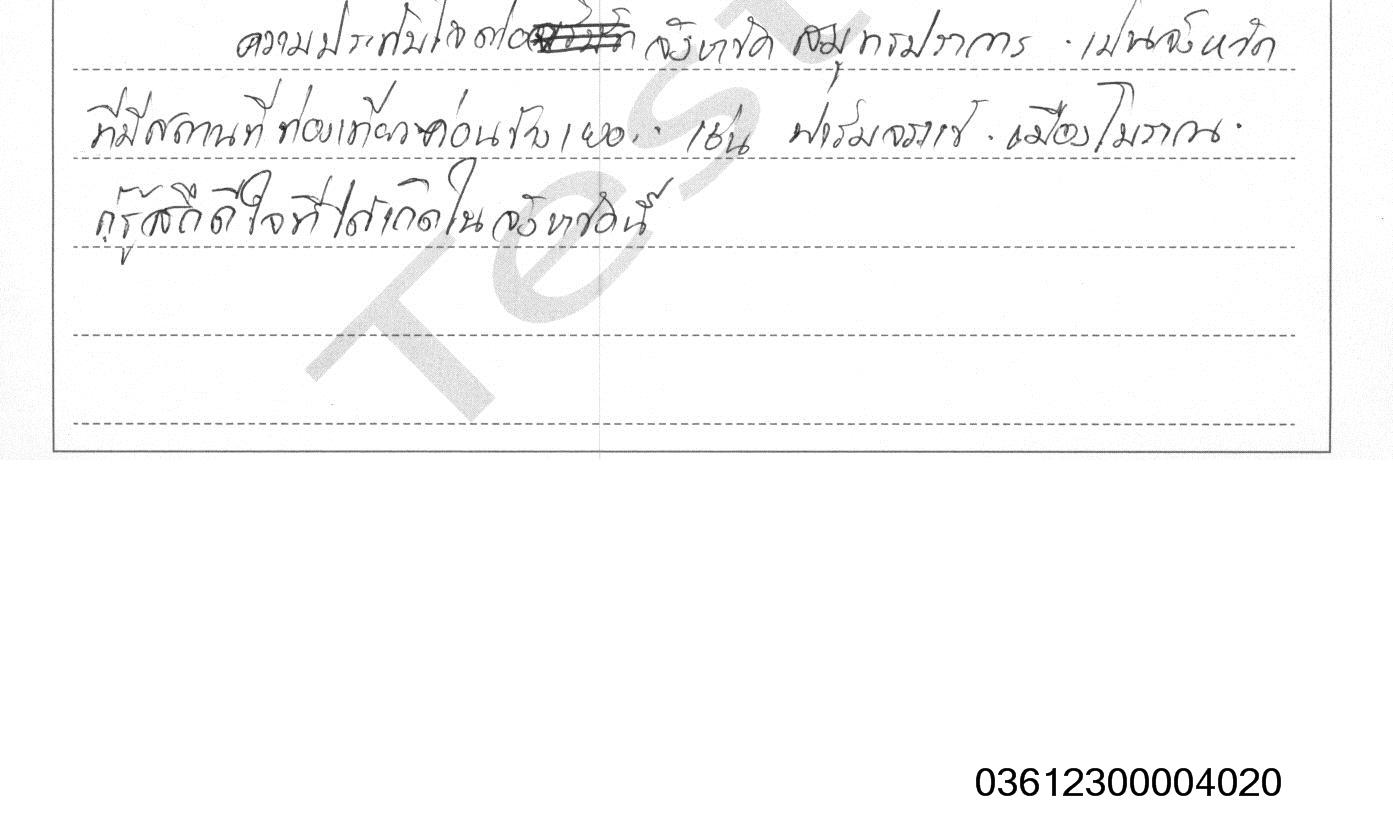 ความประทับใจต่อ จังหวัด สมุทรปราการ . เป็นจังหวัด
ที่มีสถานที่ท่องเที่ยวค่อนข้างเยอะ.. เช่น ฟาร์มจระเข้ . เมืองโบราณ .
ก็รู้สึกดีใจที่ได้เกิดในจังหวัดนี้
Test
03612300004020